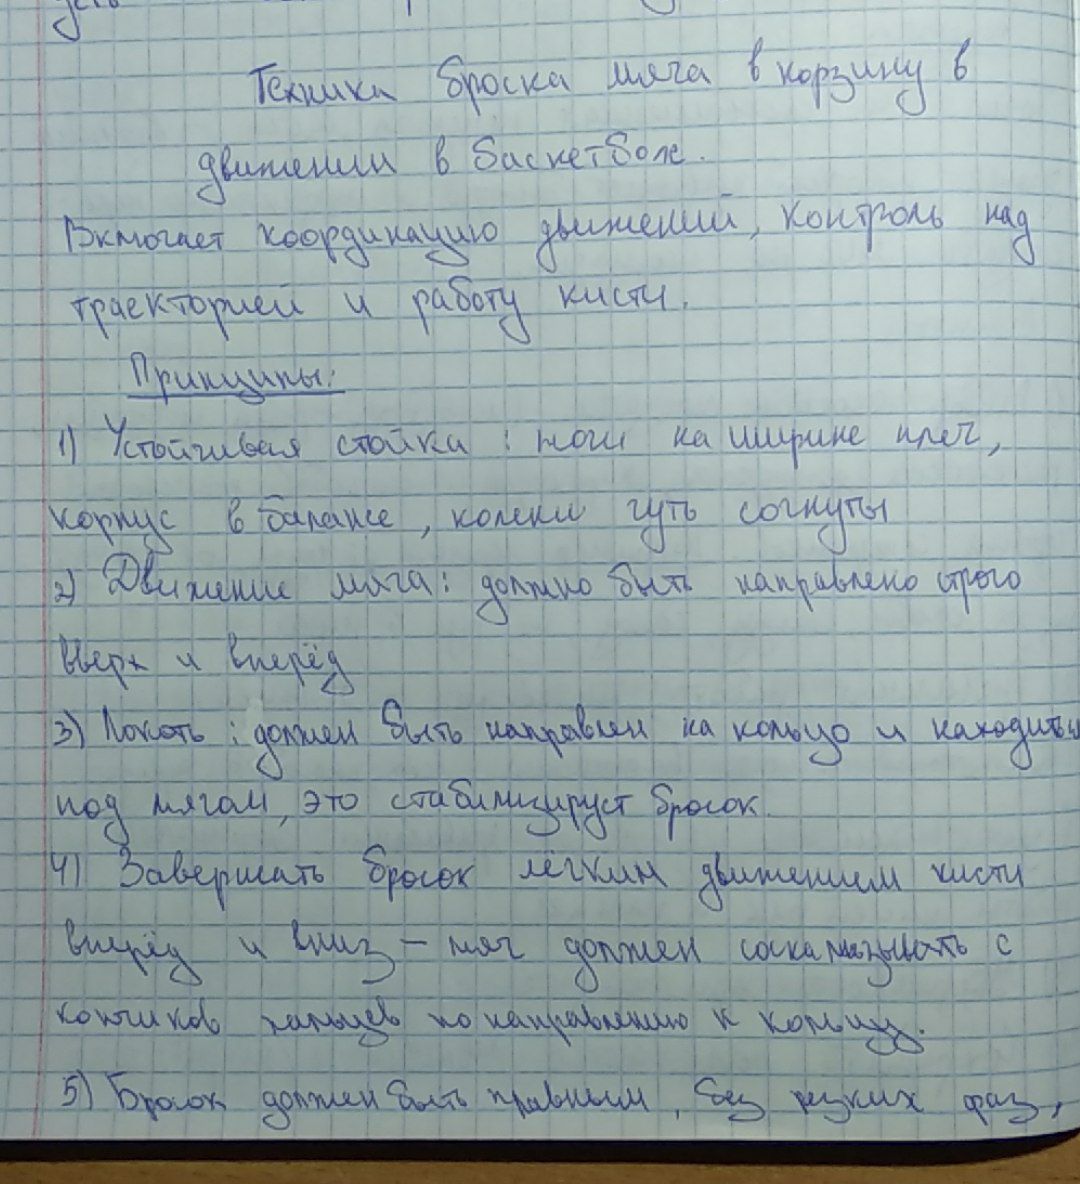 Техника броска мяча в корзину в
движении в баскетболе.
Включает координацию движений, контроль над
траекторией и работу кисти.
Принципы:
1) Устойчивая стойка : ноги на ширине плеч,
корпус в балансе, колени чуть согнуты
2) Движение мяча: должно быть направлено строго
вверх и вперёд
3) Локоть : должен быть направлен на кольцо и находиться
под мячом, это стабилизирует бросок.
4) Завершать бросок лёгким движением кисти
вперёд и вниз – мяч должен соскальзывать с
кончиков пальцев по направлению к кольцу.
5) Бросок должен быть плавным, без резких фаз,